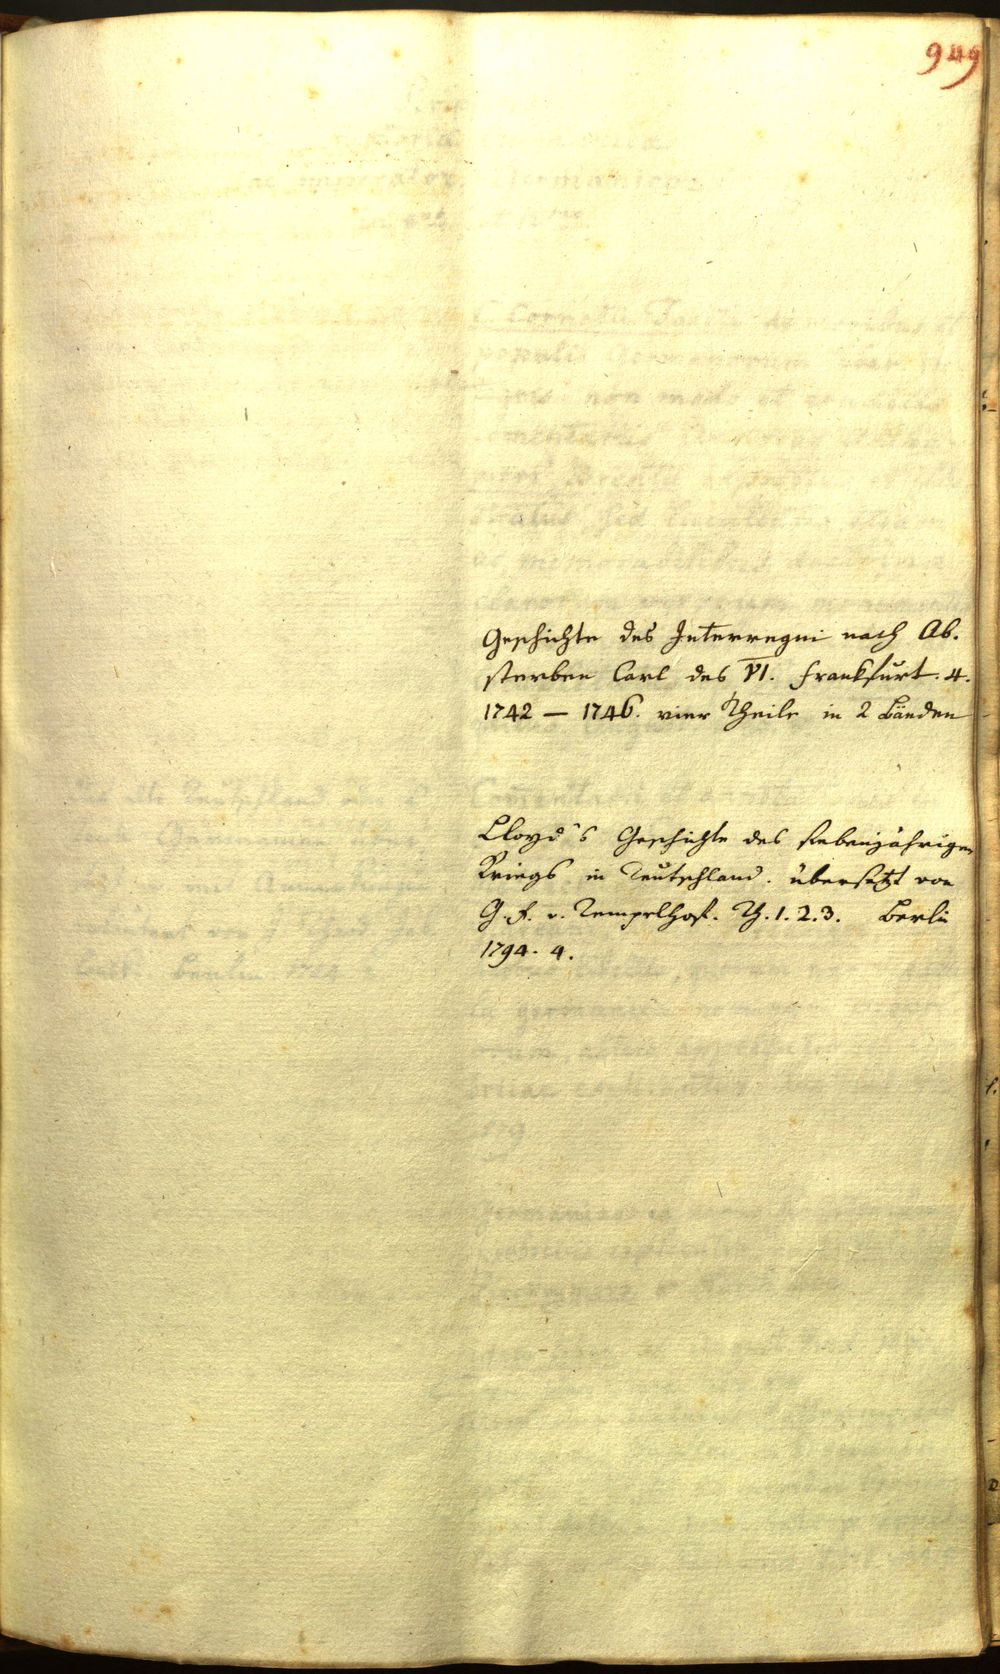 949
Geschichte des Interregni nach Ab-
sterben Carl des VI. Frankfurt. 4.
1742 — 1746. vier Theile in 2 Bänden
Lloyd's Geschichte des siebenjährigen
Kriegs in Teutschland. übersetzt von
G. F. v. Tempelhof. Th. 1. 2. 3. Berlin
1794. 4.